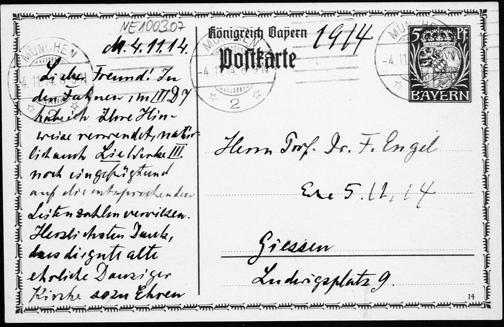 NE100307
Königreich Bayern
Postkarte
1914
5 Pf
BAYERN
MÜNCHEN
2
MÜNCHEN
MÜNCHEN
M. 4.11.14.
Lieber Freund! In
den Fahnen, im III D 7
habe ich Ihre Hin-
weise verwendet, natür-
lich auch Lie Werke III.
noch eingefügt und
auf die entsprechenden
Seitenzahlen verwiesen.
Herzlichsten Dank,
dass die gute alte
ehrliche Danziger
Kirche so zu Ehren
Herrn Prof. Dr. F. Engel
5.11.14
Giessen
Ludwigsplatz 9.
14